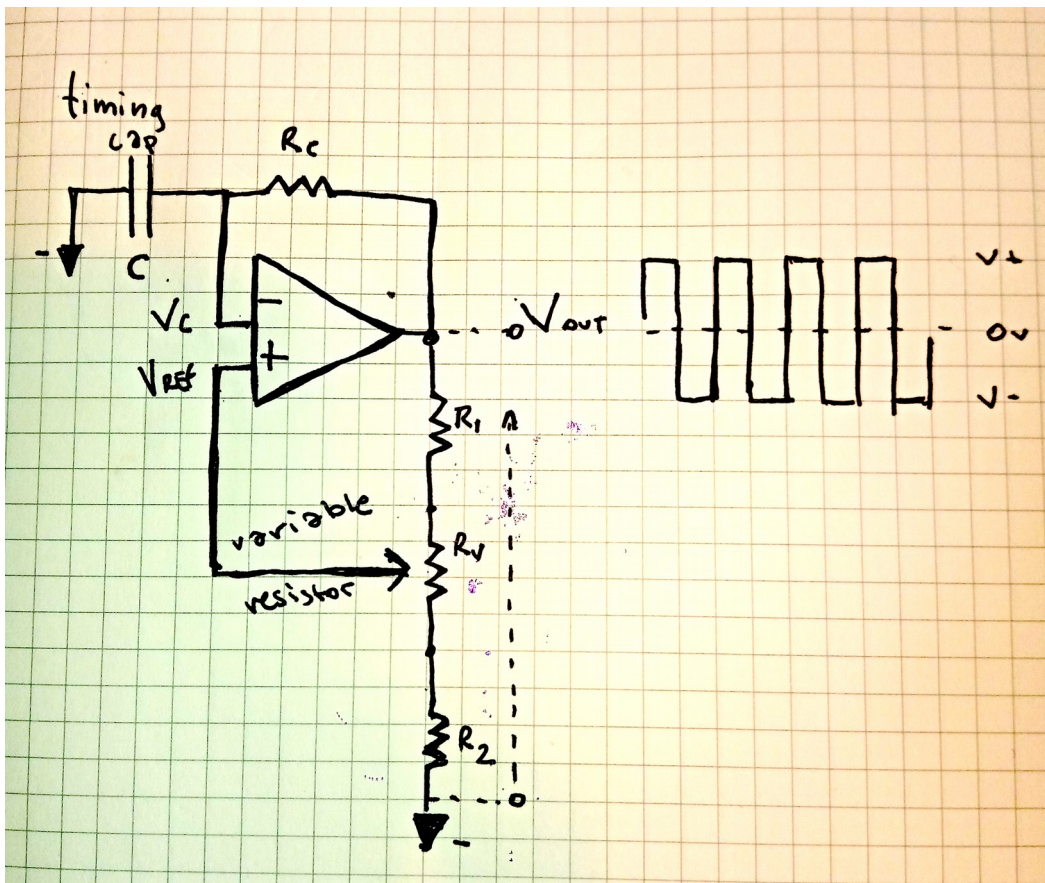 timing
cap
Rc
-
C
Vc
-
+
VREF
VOUT
V+
0v
V-
R1
variable
Rv
resistor
R2
-